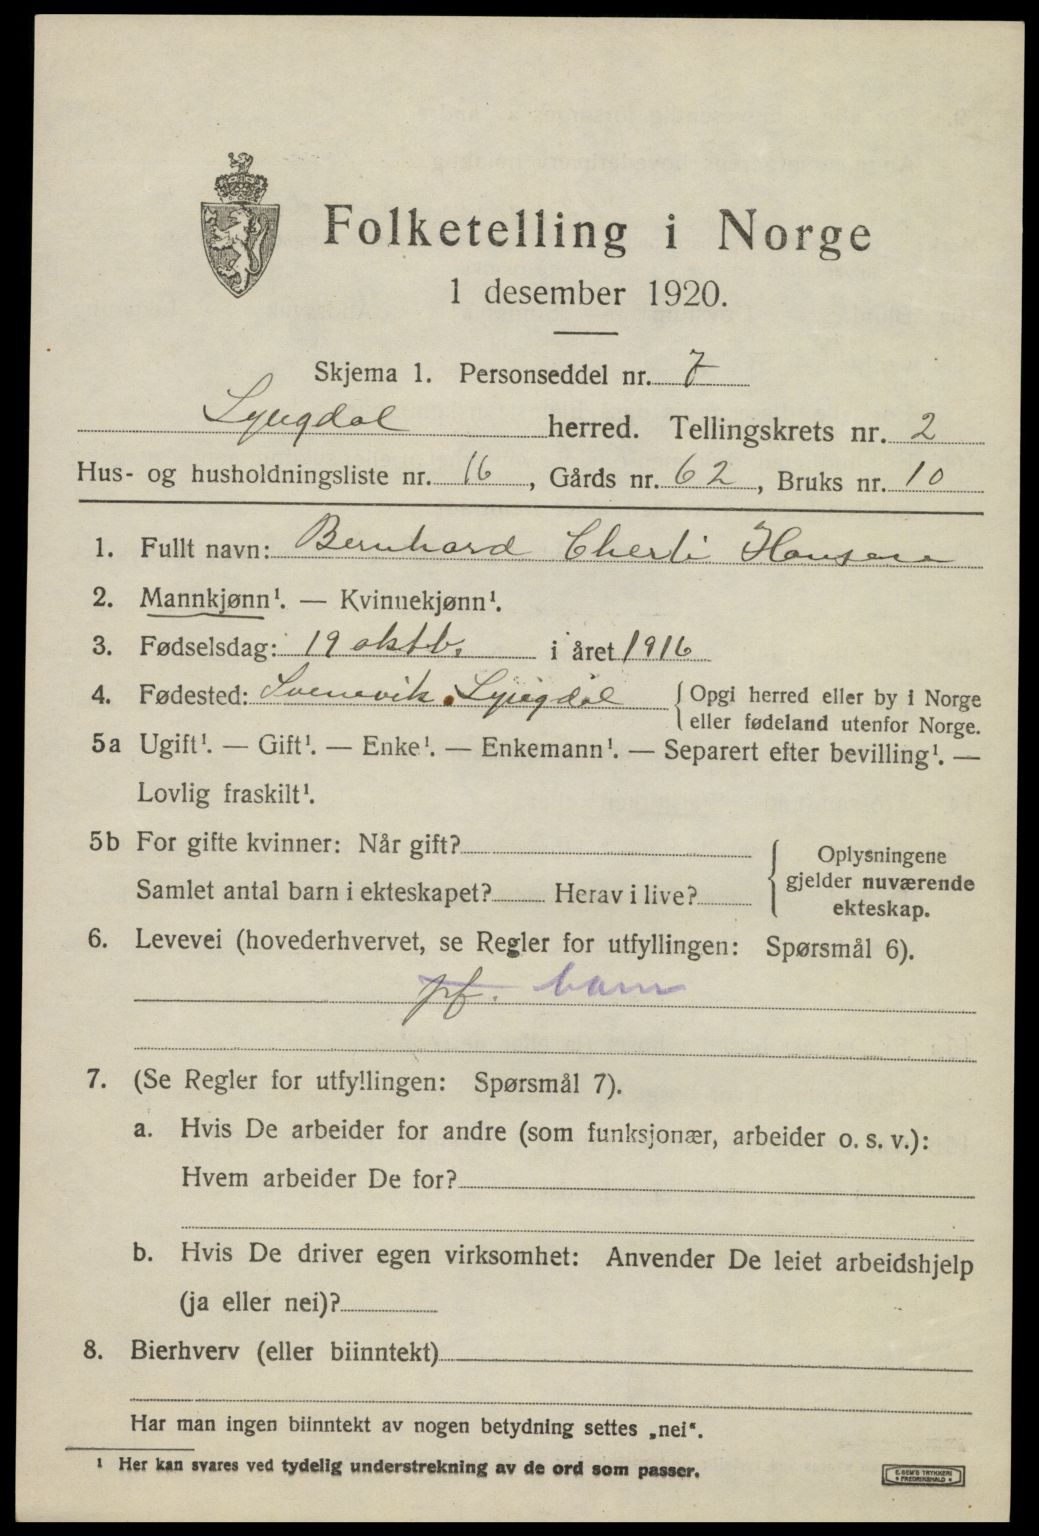 Folketelling i Norge
1 desember 1920.
Skjema 1. Personseddel nr. 7
Lyngdal herred. Tellingskrets nr. 2
Hus- og husholdningsliste nr. 16, Gårds nr. 62, Bruks nr. 10
1. Fullt navn: Bernhard Cherli Hansen
2. Mannkjønn¹. — Kvinnekjønn¹.
3. Fødselsdag: 19 oktb. i året 1916
4. Fødested: Svenevik. Lyngdal { Opgi herred eller by i Norge
eller fødeland utenfor Norge.
5a Ugift¹. — Gift¹. — Enke¹. — Enkemann¹. — Separert efter bevilling¹. —
Lovlig fraskilt¹.
5b For gifte kvinner: Når gift?
Samlet antal barn i ekteskapet? Herav i live?
Oplysningene
gjelder nuværende
ekteskap.
6. Levevei (hovederhvervet, se Regler for utfyllingen: Spørsmål 6).
pf. barn
7. (Se Regler for utfyllingen: Spørsmål 7).
a. Hvis De arbeider for andre (som funksjonær, arbeider o. s. v.):
Hvem arbeider De for?
b. Hvis De driver egen virksomhet: Anvender De leiet arbeidshjelp
(ja eller nei)?
8. Bierhverv (eller biinntekt)
Har man ingen biinntekt av nogen betydning settes „nei“.
¹ Her kan svares ved tydelig understrekning av de ord som passer.
E. SEM'S TRYKKERI
• FREDRIKSHALD •